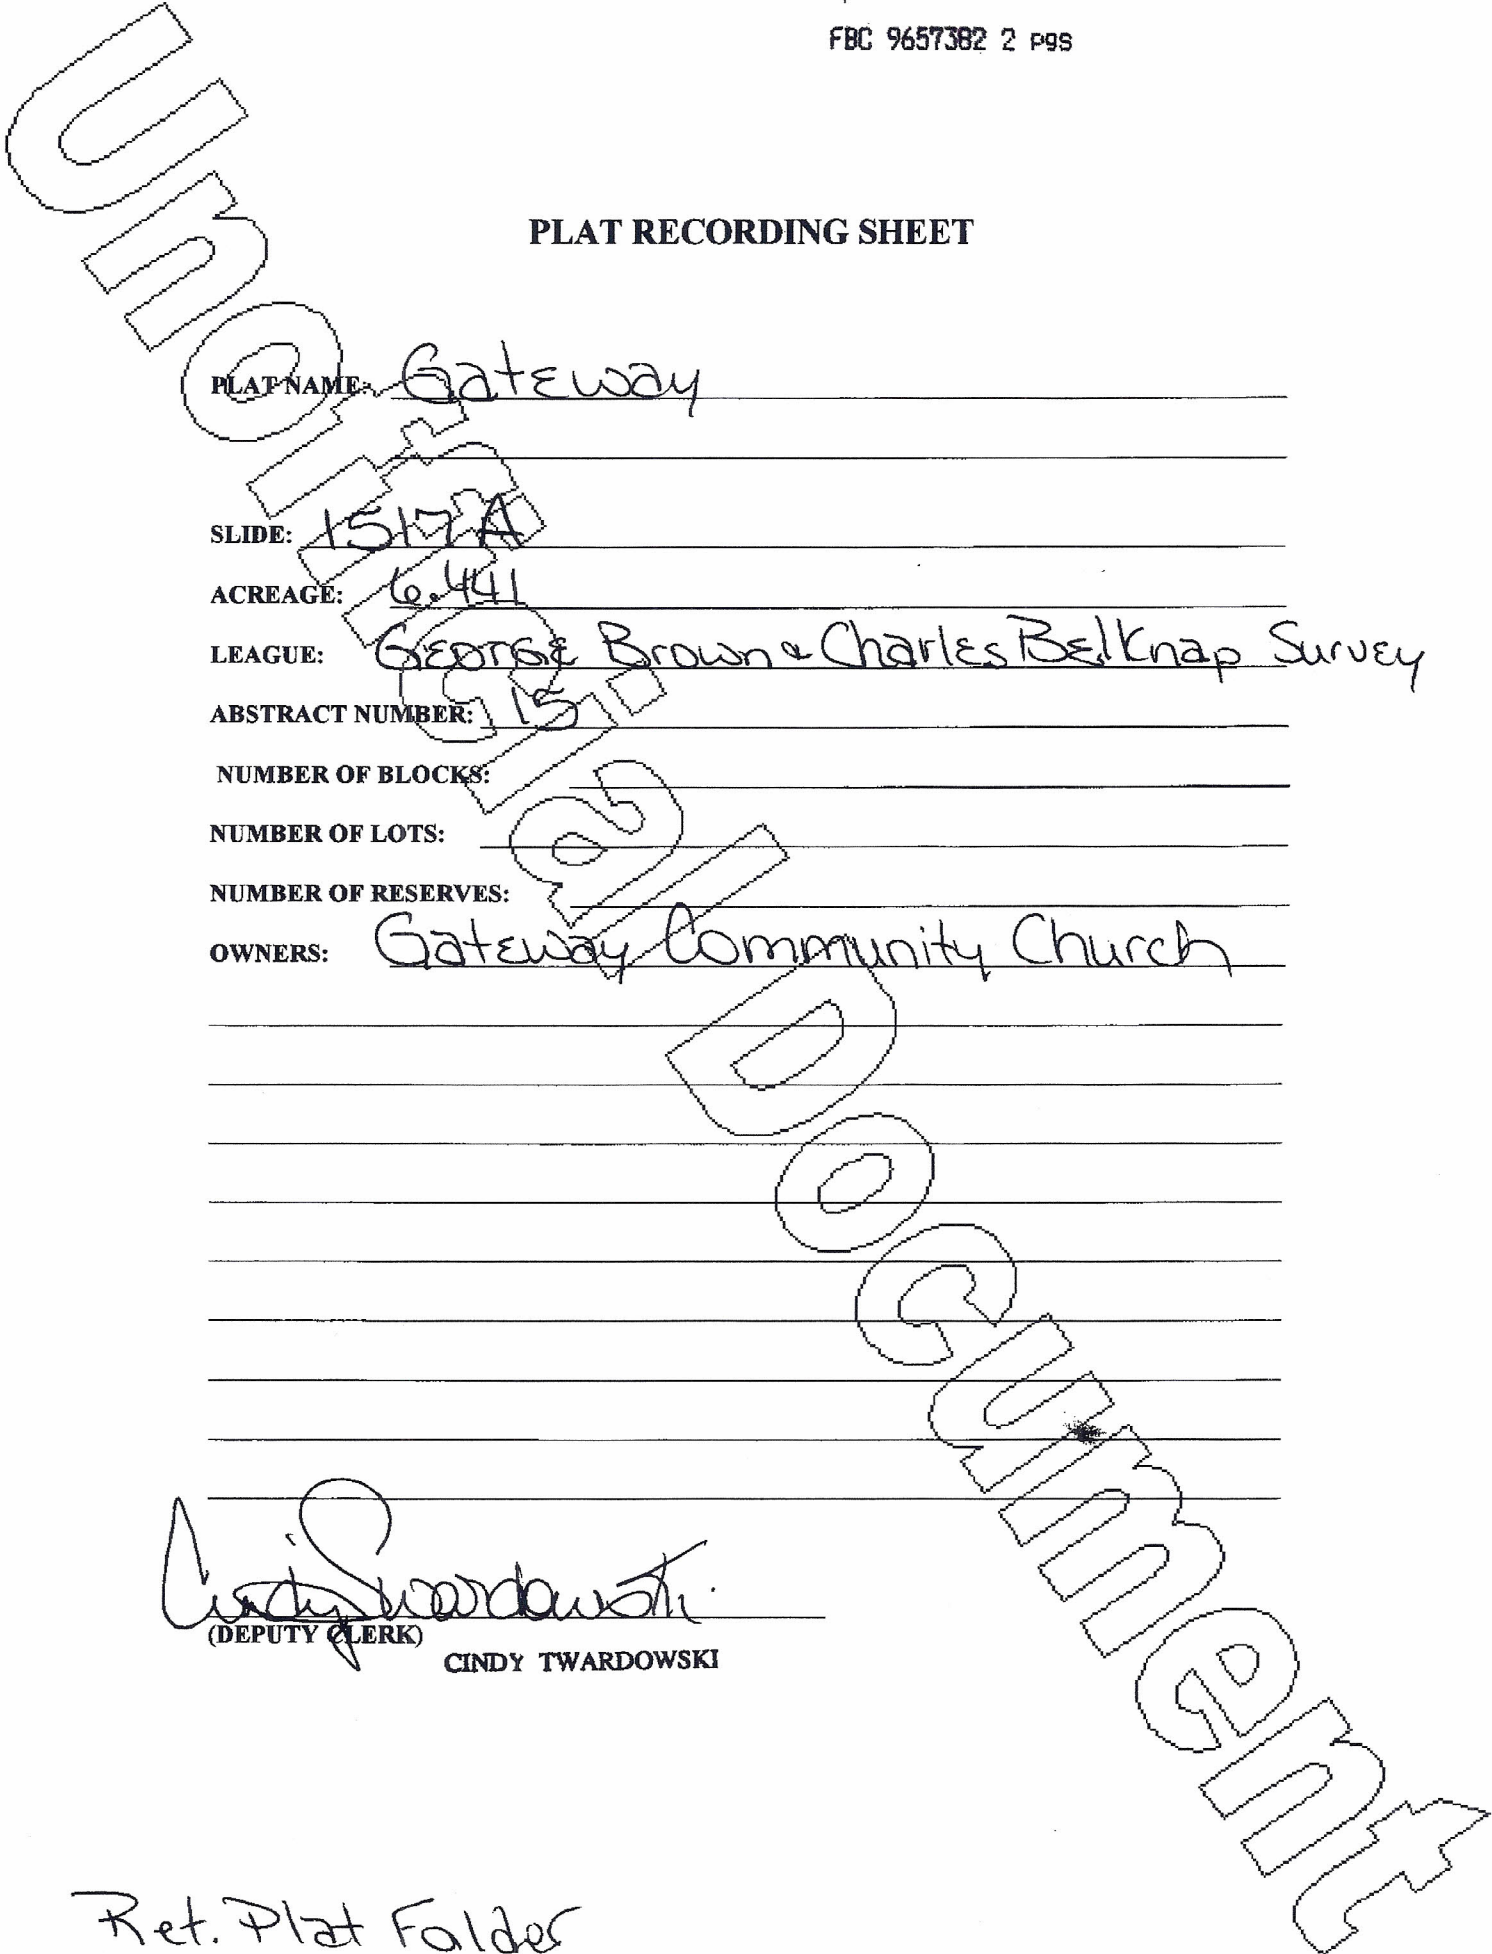 FBC 9657382 2 pgs
PLAT RECORDING SHEET
PLAT NAME: Gateway
SLIDE: 1517 A
ACREAGE: 6.441
LEAGUE: George Brown & Charles Belknap Survey
ABSTRACT NUMBER: 15
NUMBER OF BLOCKS:
NUMBER OF LOTS:
NUMBER OF RESERVES:
OWNERS: Gateway Community Church
Cindy Twardowski
(DEPUTY CLERK)
CINDY TWARDOWSKI
Ret. Plat Folder
Unofficial Document